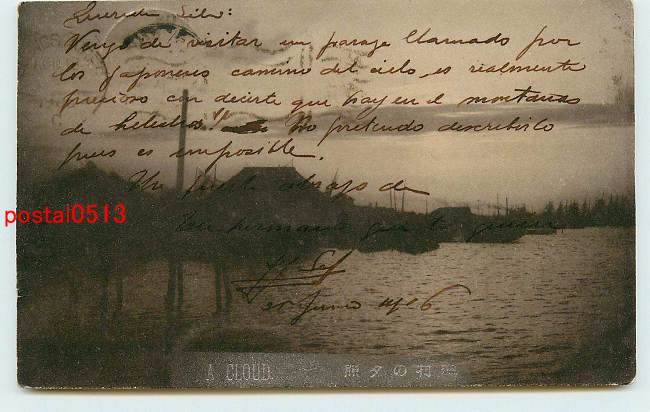 Querida Silv:
Vengo de visitar un paraje llamado por
los Japoneses camino del cielo, es realmente
precioso con decirte que hay en el montañas
de helechos!! No pretendo describirlo
pues es imposible.
Un fuerte abrazo de
tu hermano que te quiere
Junio 1906
postal0513
A CLOUD.
村の夕照